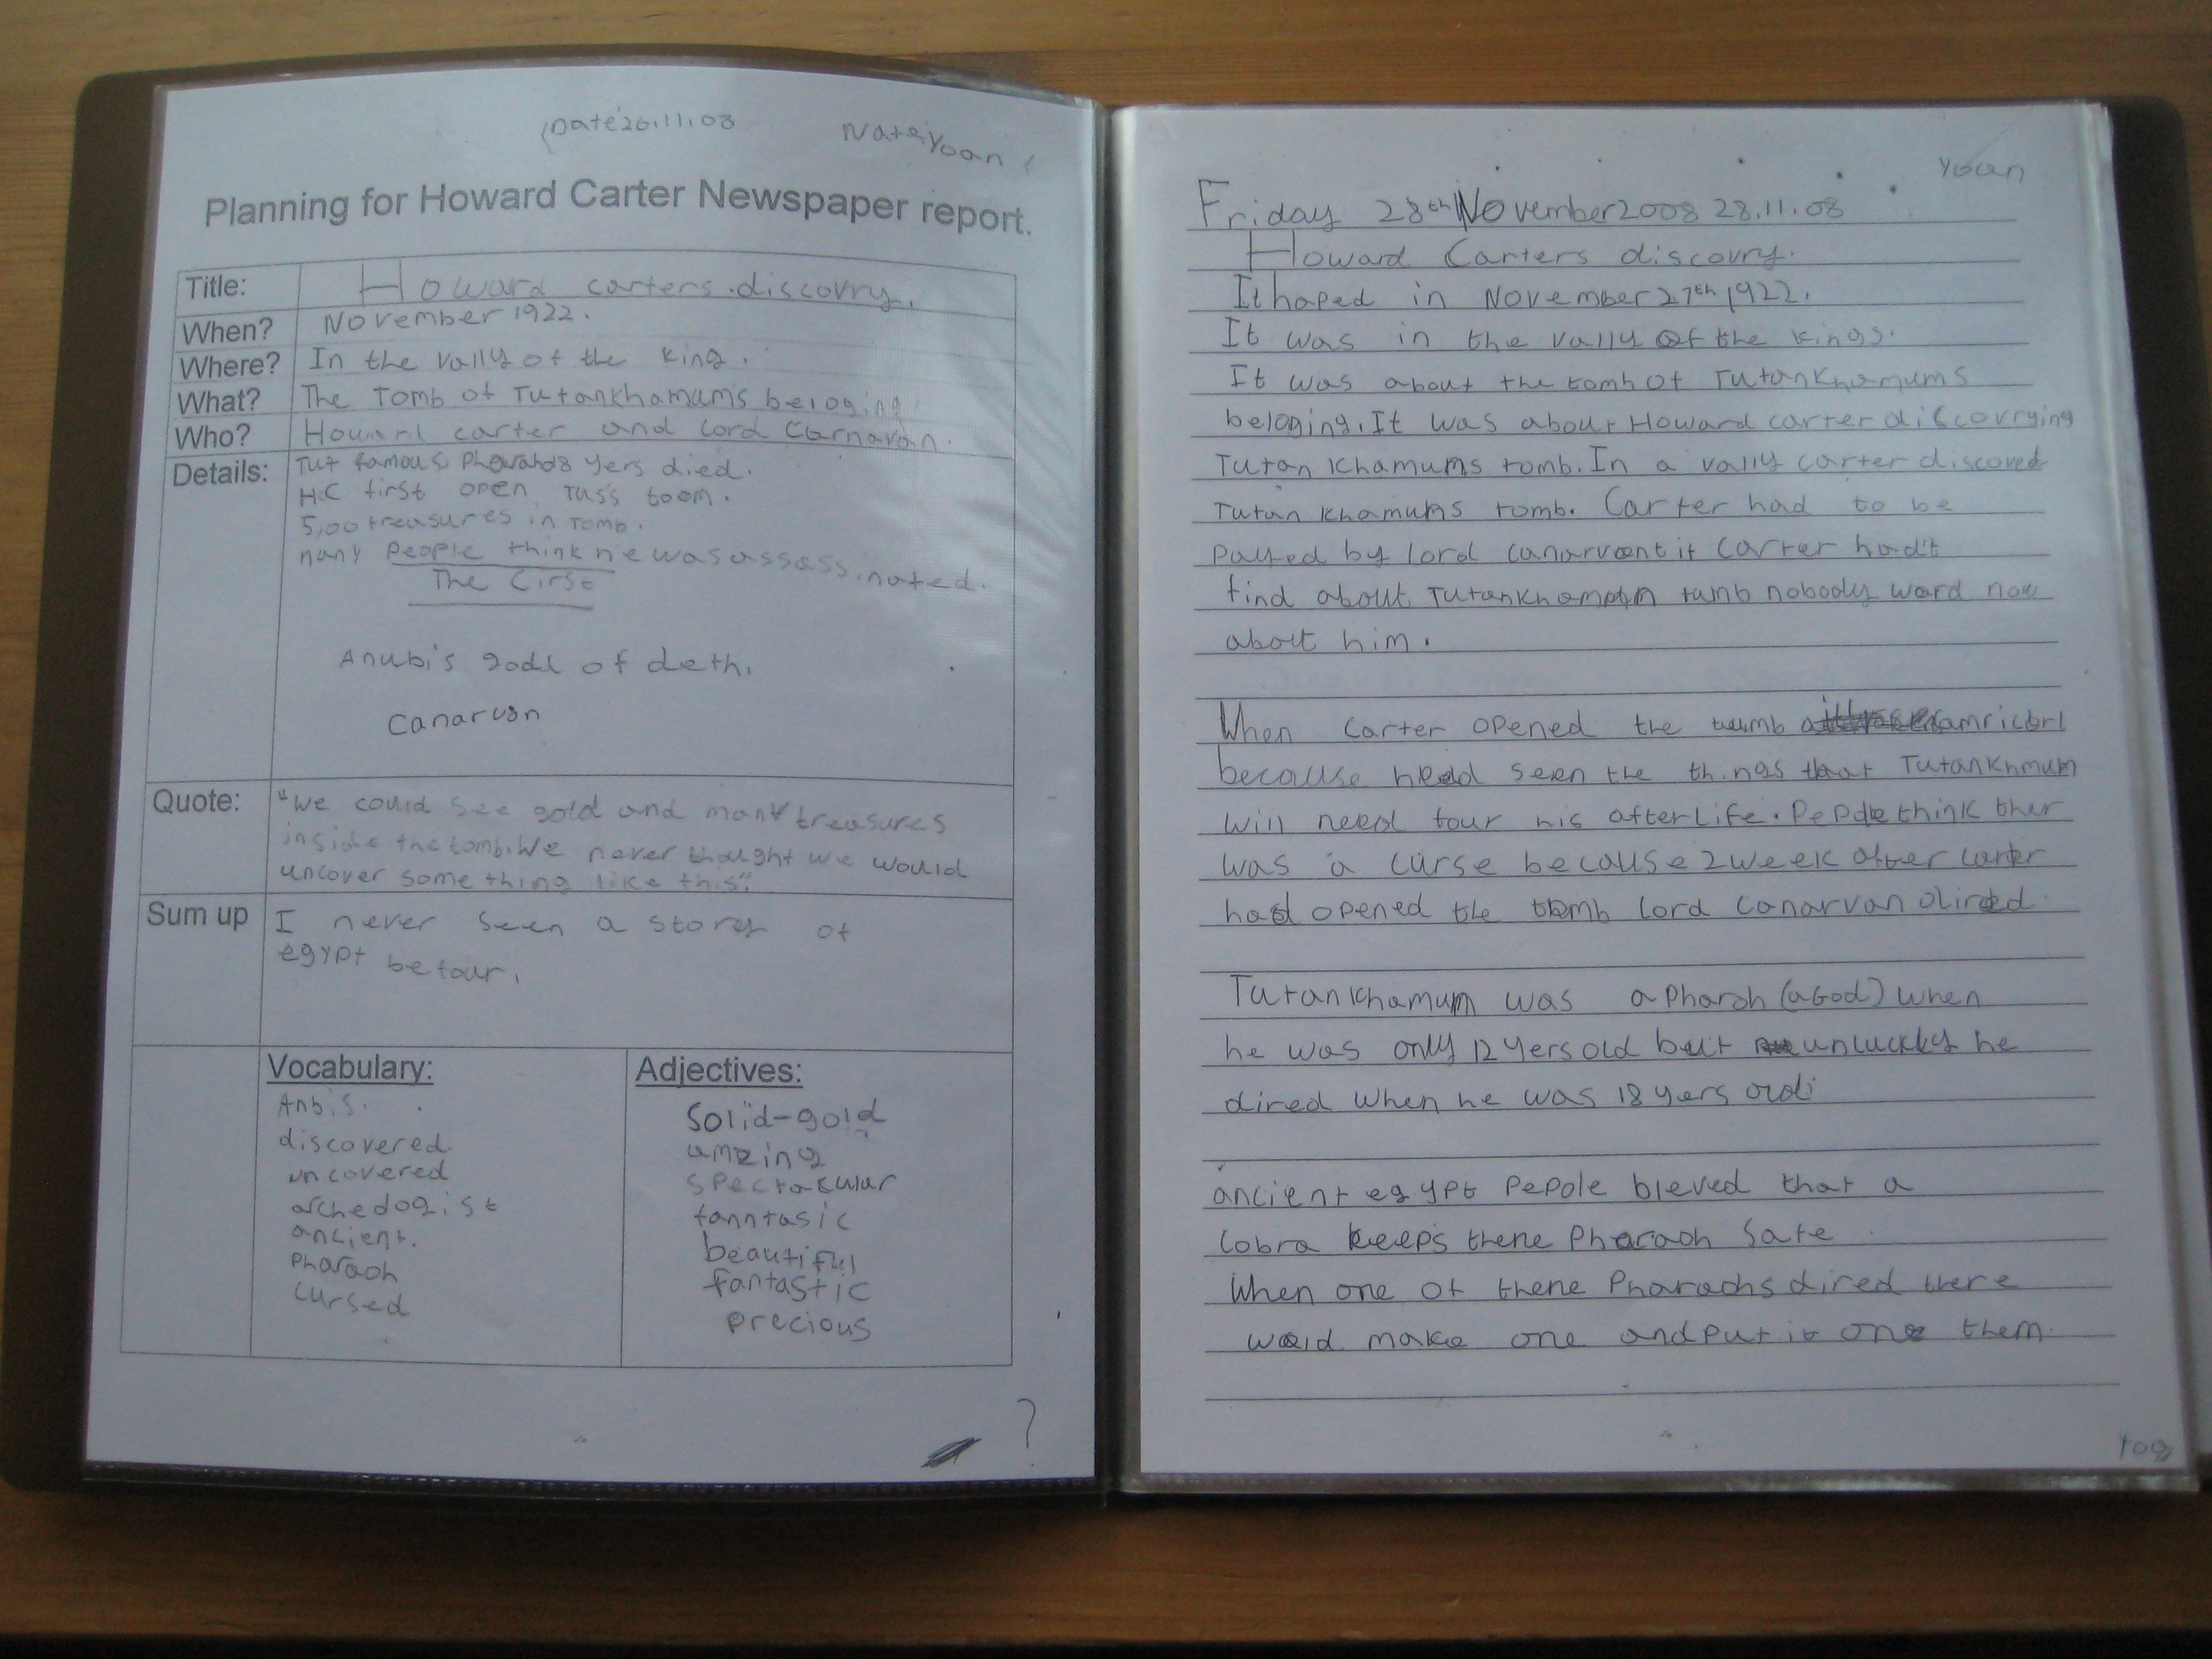 Date 26.11.08
Yoan
Planning for Howard Carter Newspaper report.
Title: Howard carters.discovry.
When? November 1922.
Where? In the vally of the king.
What? The Tomb of Tutankhamum's beloging
Who? Howard carter and lord Carnarvan.
Details: Tut famous Pharahd8 yers died.
HC first open Tus's toom.
5,00 treasures in Tomb.
many People think he was assassinated.
The Cirse
Anubi's godd of deth.
Canarvan
Quote: "We could see gold and many treasures
inside the tomb. We never thought we would
uncover something like this".
Sum up I never seen a story of
egypt befour.
Vocabulary:
Anbis.
discovered.
uncovered
archedogist
ancient.
Pharaoh
cursed
Adjectives:
Solid-gold
amzing
spectacular
fanntasic
beautiful
fantastic
precious
?
Yoan
Friday 28th November 2008 28.11.08
Howard Carters discovry.
It haped in November 27th 1922.
It was in the vally of the kings.
It was about the tomb of Tutankhamums
beloging. It was about Howard carter discovrying
Tutan khamums tomb. In a vally carter discoved
Tutan khamums tomb. Carter had to be
payed by lord canarvont if carter hadt
find about Tutankhamum tumb nobody ward now
about him.
When Carter opened the tumb amricbrl
because head seen the things that Tutankhmum
will need four his afterlife. Pepole think ther
was a curse because 2 week after carter
had opened the tomb lord canarvan dired.
Tutankhamum was a Pharoh (a God) when
he was only 12 yers old but unluckly he
dired when he was 18 yers old
ancient egypt Pepole bleved that a
cobra keeps there Pharaoh safe
When one of there Pharaohs dired there
would make one and put it one them.